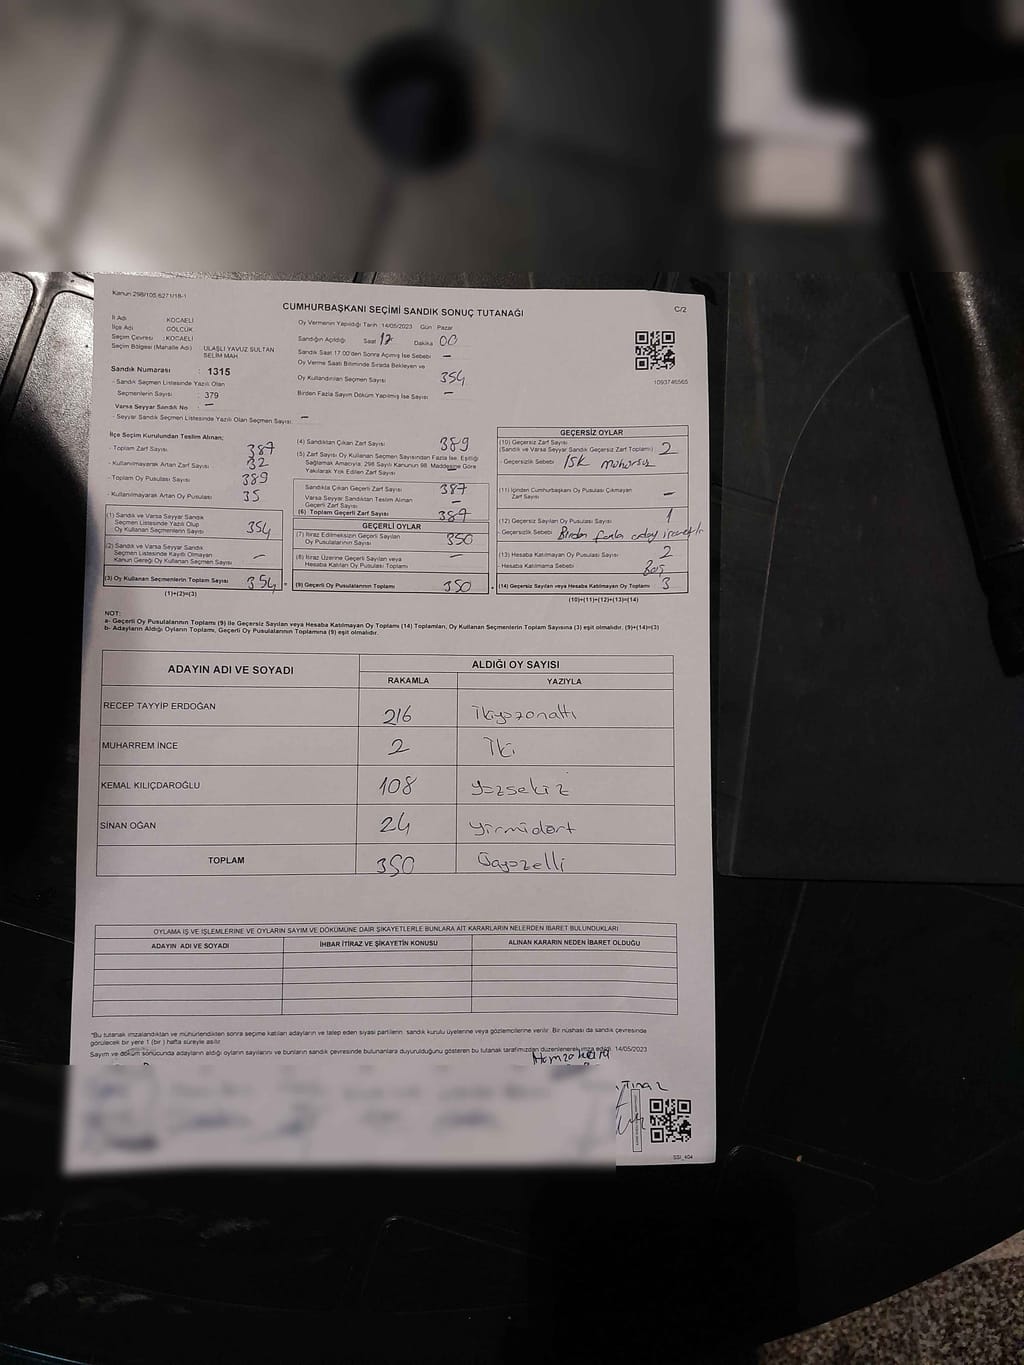 Kanun 298/105,6271/18-1
CUMHURBAŞKANI SEÇİMİ SANDIK SONUÇ TUTANAĞI
C/2
İl Adı : KOCAELİ
İlçe Adı : GÖLCÜK
Seçim Çevresi : KOCAELİ
Seçim Bölgesi (Mahalle Adı) : ULAŞLI YAVUZ SULTAN SELİM MAH
Sandık Numarası : 1315
- Sandık Seçmen Listesinde Yazılı Olan
Seçmenlerin Sayısı : 379
Varsa Seyyar Sandık No : –
- Seyyar Sandık Seçmen Listesinde Yazılı Olan Seçmen Sayısı: –
Oy Vermenin Yapıldığı Tarih :14/05/2023 Gün : Pazar
Sandığın Açıldığı Saat 17 Dakika 00
Sandık Saat 17.00'den Sonra Açılmış İse Sebebi –
Oy Verme Saati Bitiminde Sırada Bekleyen ve
Oy Kullandırılan Seçmen Sayısı 354
Birden Fazla Sayım Döküm Yapılmış İse Sayısı –
1093746565
İlçe Seçim Kurulundan Teslim Alınan;
- Toplam Zarf Sayısı 387
- Kullanılmayarak Artan Zarf Sayısı 32
- Toplam Oy Pusulası Sayısı 389
- Kullanılmayarak Artan Oy Pusulası 35
(1) Sandık ve Varsa Seyyar Sandık
Seçmen Listesinde Yazılı Olup
Oy Kullanan Seçmenlerin Sayısı 354
(2) Sandık ve Varsa Seyyar Sandık
Seçmen Listesinde Kayıtlı Olmayan
Kanun Gereği Oy Kullanan Seçmen Sayısı –
(3) Oy Kullanan Seçmenlerin Toplam Sayısı 354
(1)+(2)=(3)
(4) Sandıktan Çıkan Zarf Sayısı 389
(5) Zarf Sayısı Oy Kullanan Seçmen Sayısından Fazla İse, Eşitliği
Sağlamak Amacıyla; 298 Sayılı Kanunun 98. Maddesine Göre
Yakılarak Yok Edilen Zarf Sayısı –
Sandıkta Çıkan Geçerli Zarf Sayısı 387
Varsa Seyyar Sandıktan Teslim Alınan
Geçerli Zarf Sayısı –
(6) Toplam Geçerli Zarf Sayısı 387
GEÇERLİ OYLAR
(7) İtiraz Edilmeksizin Geçerli Sayılan
Oy Pusulalarının Sayısı 350
(8) İtiraz Üzerine Geçerli Sayılan veya
Hesaba Katılan Oy Pusulası Toplamı –
(9) Geçerli Oy Pusulalarının Toplamı 350
GEÇERSİZ OYLAR
(10) Geçersiz Zarf Sayısı
(Sandık ve Varsa Seyyar Sandık Geçersiz Zarf Toplamı) 2
- Geçersizlik Sebebi
(11) İçinden Cumhurbaşkanı Oy Pusulası Çıkmayan
Zarf Sayısı –
(12) Geçersiz Sayılan Oy Pusulası Sayısı 1
- Geçersizlik Sebebi Birden fazla aday
(13) Hesaba Katılmayan Oy Pusulası Sayısı 2
- Hesaba Katılmama Sebebi Boş
(14) Geçersiz Sayılan veya Hesaba Katılmayan Oy Toplamı 3
(10)+(11)+(12)+(13)=(14)
NOT:
a- Geçerli Oy Pusulalarının Toplamı (9) ile Geçersiz Sayılan veya Hesaba Katılmayan Oy Toplamı (14) Toplamları, Oy Kullanan Seçmenlerin Toplam Sayısına (3) eşit olmalıdır. (9)+(14)=(3)
b- Adayların Aldığı Oyların Toplamı, Geçerli Oy Pusulalarının Toplamına (9) eşit olmalıdır.
ADAYIN ADI VE SOYADI ALDIĞI OY SAYISI
RAKAMLA YAZIYLA
RECEP TAYYİP ERDOĞAN 216 İkiyüzonaltı
MUHARREM İNCE 2 İki
KEMAL KILIÇDAROĞLU 108 yüzsekiz
SİNAN OĞAN 24 yirmidört
TOPLAM 350 Üçyüzelli
OYLAMA İŞ VE İŞLEMLERİNE VE OYLARIN SAYIM VE DÖKÜMÜNE DAİR ŞİKAYETLERLE BUNLARA AİT KARARLARIN NELERDEN İBARET BULUNDUKLARI
ADAYIN ADI VE SOYADI İHBAR İTİRAZ VE ŞİKAYETİN KONUSU ALINAN KARARIN NEDEN İBARET OLDUĞU
*Bu tutanak imzalandıktan ve mühürlendikten sonra seçime katılan adayların ve talep eden siyasi partilerin sandık kurulu üyelerine veya gözlemcilerine verilir. Bir nüshası da sandık çevresinde
görülecek bir yere 1 (bir ) hafta süreyle asılır.
Sayım ve döküm sonucunda adayların aldığı oyların sayılarını ve bunların sandık çevresinde bulunanlara duyurulduğunu gösteren bu tutanak tarafımızdan düzenlenerek imza edildi. 14/05/2023
SSİ_404